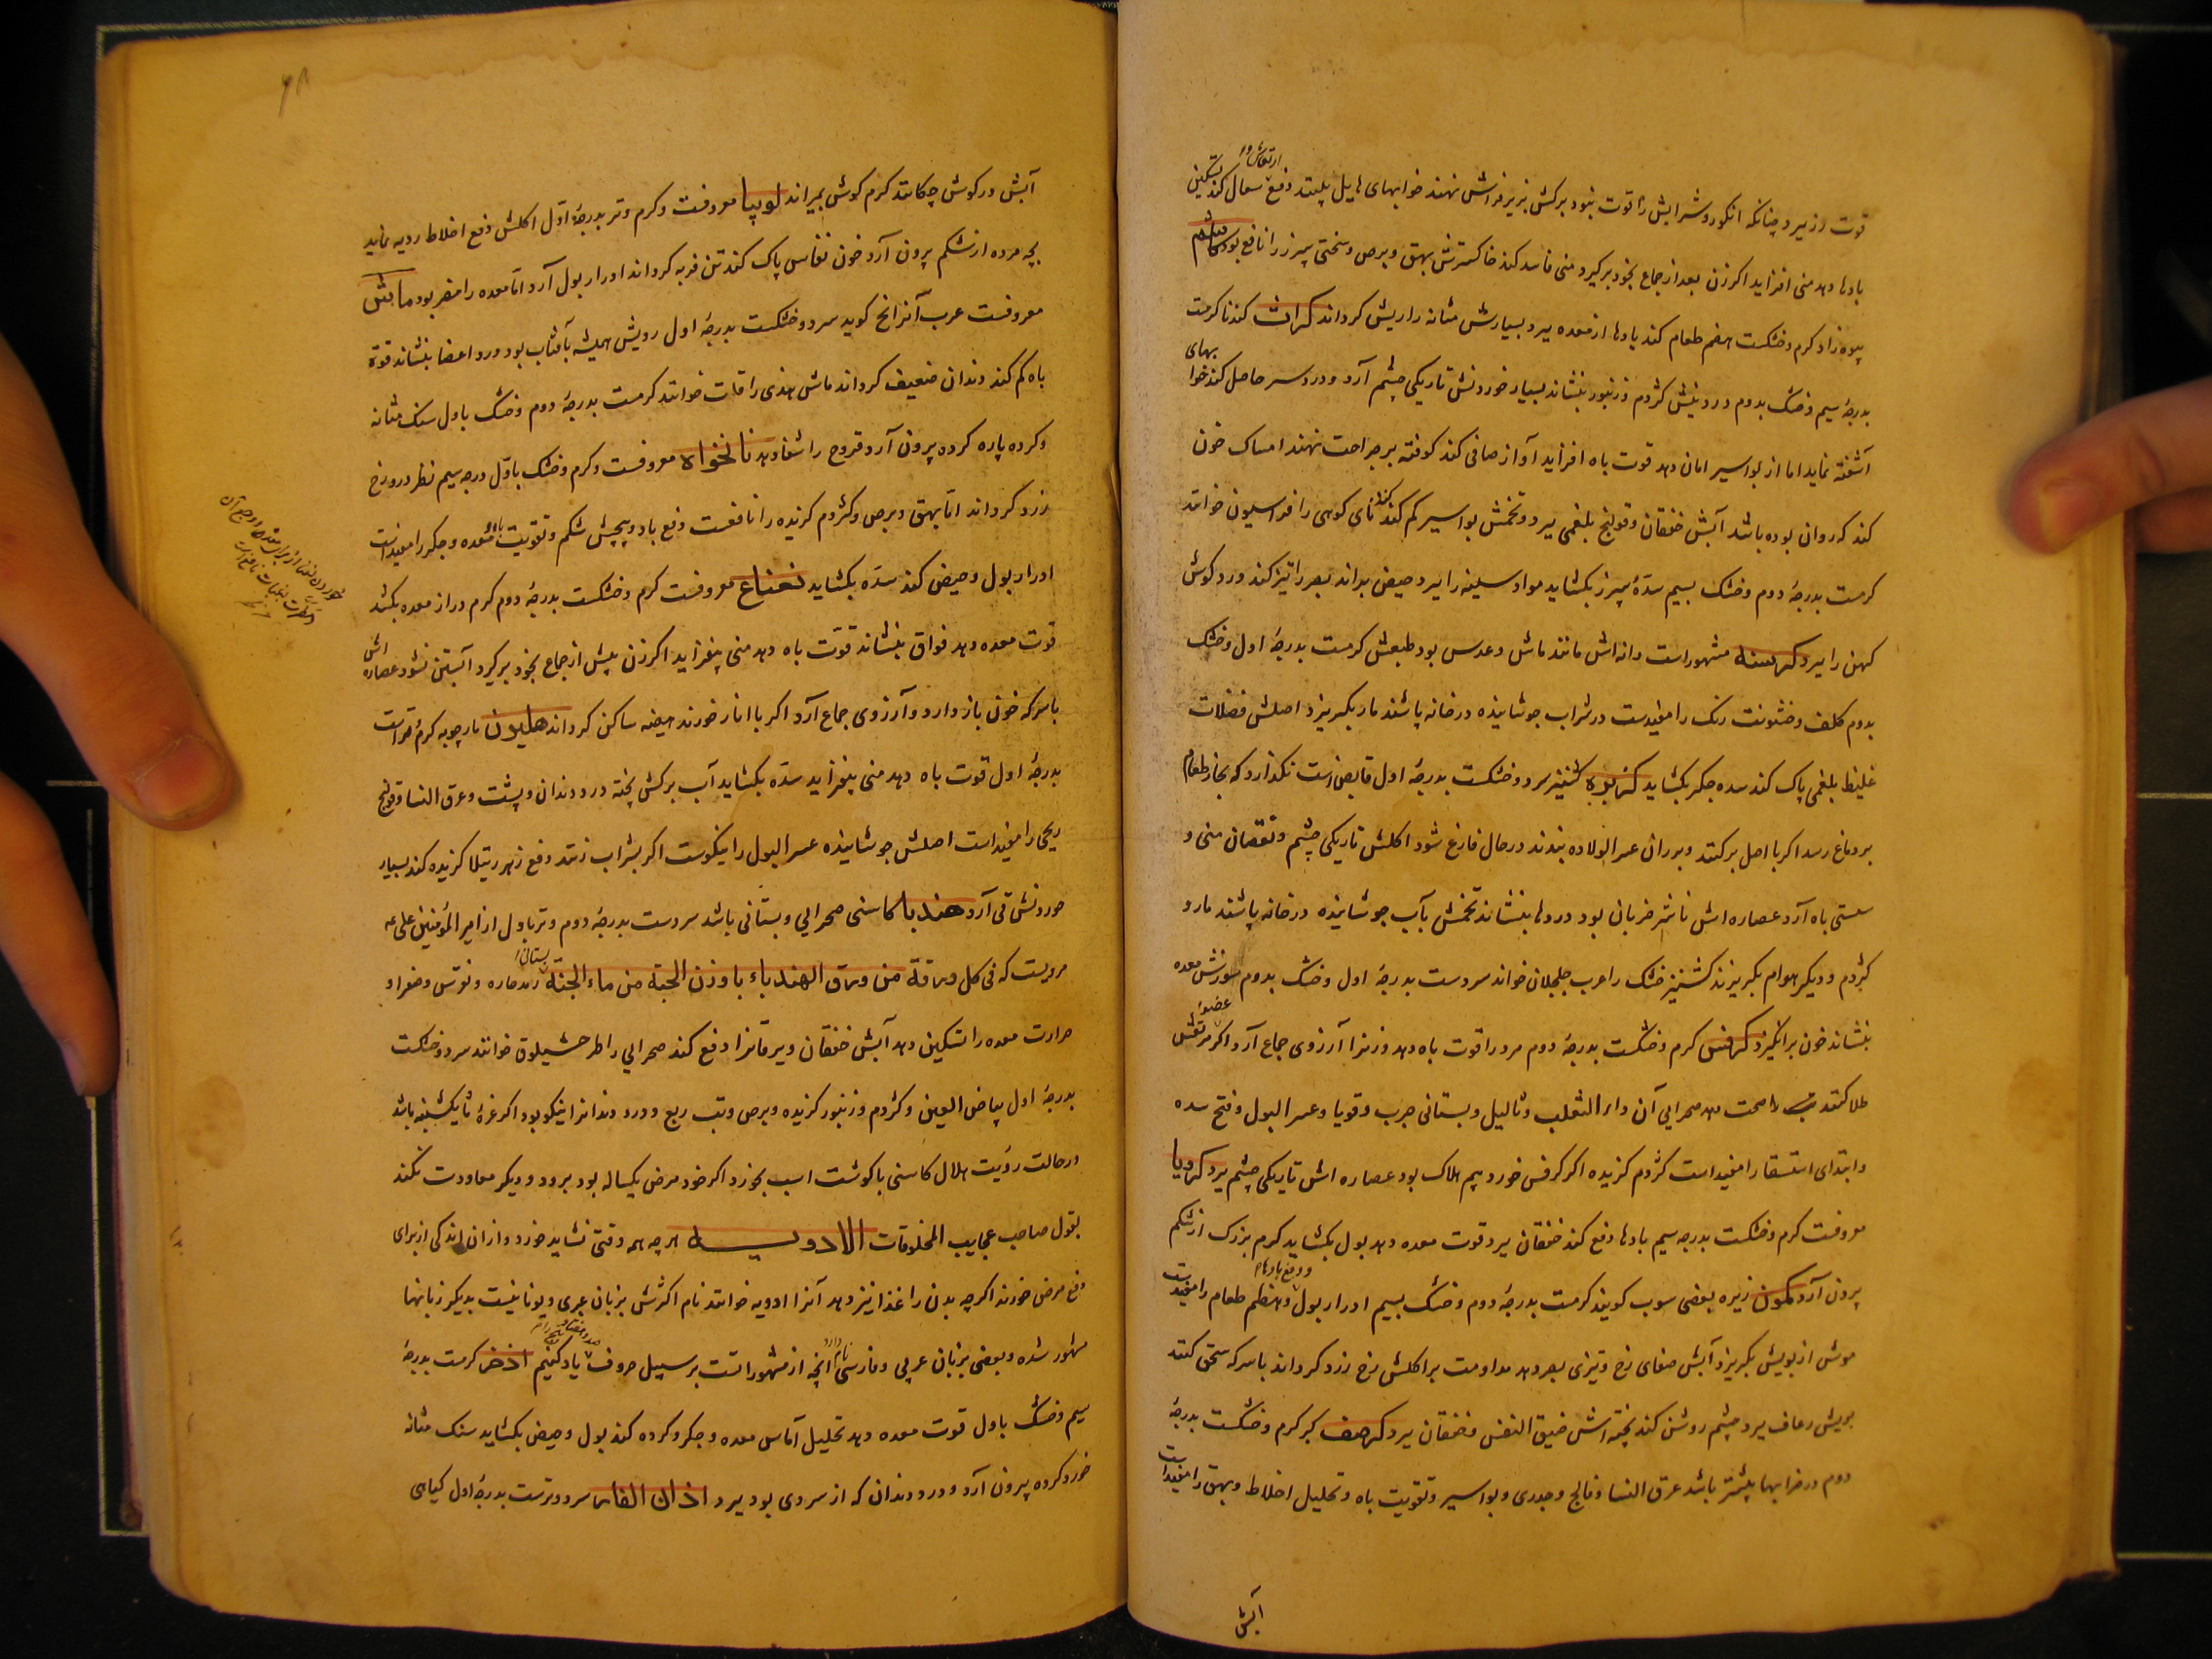 قوت رز ببرد چنانکه انکور و شرابش را قوت نبود برکش بزیر فراش نهند خوابهای هایل بیند دفع ارتعاش و سعال کند تسکین
بادها دهد منی افزاید اکر زن بعد از جماع بخود برکیرد منی فاسد کند خاکسترش بهق و برص و سختی سپرز را نافع بود کاشم
پیوه زاد کرم و خشکست هضم طعام کند بادها از معده ببرد بسیارش مثانه را ریش کرداند کراث کندنا کرمست
بدرجهٔ سیم و خشک بدوم درد نیش کژدم و زنبور بنشاند بسیار خوردنش تاریکی چشم آرد و درد سر حاصل کند خوابهای
آشفته نماید اما از بواسیر امان دهد قوت باه افزاید آواز صافی کند کوفته بر جراحت نهند امساک خون
کند که روان بوده باشد آبش خفقان و قولنج بلغمی ببرد و تخمش بواسیر کم کند کندنای کوهی را فراسیون خوانند
کرمست بدرجهٔ دوم و خشک بسیم سدهٔ سپرز بکشاید مواد سینه را ببرد حیض براند بصر را تیز کند درد کوش
کهن را ببرد کرسنه مشهور است دانه اش مانند ماش و عدس بود طبعش کرمست بدرجهٔ اول و خشک
بدوم کلف و خشونت رنک را مفیدست در شراب جوشانیده در خانه پاشند مار بکریزد اصلش فضلات
غلیظ بلغمی پاک کند سده جکر بکشاید کزبره کشنیز سرد و خشکست بدرجهٔ اول قابض است نکذارد که بخار طعام
بر دماغ رسد اکر با اصل برکنند و بر ران عسر الولاده بندند در حال فارغ شود اکلش تاریکی چشم و نقصان منی و
سستی باه آرد عصاره اش با شیر ضربان بود دردها بنشاند تخمش بآب جوشانیده در خانه پاشند مار و
کژدم و دیکر هوام بکریزند کشنیز خشک را عرب جلجلان خواند سردست بدرجهٔ اول و خشک بدوم سوزش معده
بنشاند خون برانکیزد کرفس کرم و خشکست بدرجهٔ دوم مرد را قوت باه دهد و زنرا آرزوی جماع آرد اکر بر عضو مرتعش
طلا کنند صحت دهد صحرایی آن داء الثعلب و ثالیل و بستانی جرب و قوبا و عسر البول و فتح سده
و ابتدای استسقا را مفید است کژدم کزیده اکر کرفس خورد بیم هلاک بود عصاره اش تاریکی چشم ببرد کرویا
معروفست کرم و خشکست بدرجه سیم بادها دفع کند خفقان ببرد قوت معده دهد بول بکشاید کرم بزرک از شکم
برون آرد کمون زیره بعضی سوب کویند کرمست بدرجهٔ دوم و خشک بسیم ادرار بول و دفع بادها و هضم طعام را مفیدست
موش از بویش بکریزد آبش صفای رخ و تیزی بصر دهد مداومت بر اکلش رخ زرد کرداند با سرکه سحق کنند
بویش رعاف ببرد چشم روشن کند پخته اش ضیق النفس و خفقان ببرد کرصف کبر کرم و خشکست بدرجهٔ
دوم در خرابها بیشتر باشد عرق النسا و فالج و جدری و بواسیر و تقویت باه و تحلیل اخلاط و بهق را مفید است
آبش
۶۸
آبش در کوش چکانند کرم کوش بمیراند لوبیا معروفست و کرم و تر بدرجهٔ اوّل اکلش دفع اخلاط ردیه نماید
بچه مرده از شکم برون آرد خون نفاس پاک کند تن فربه کرداند ادرار بول آرد امّا معده را مضر بود ماش
معروفست عرب آنرا مخ کوید سرد و خشکست بدرجهٔ اول رویش همیشه بآفتاب بود درد اعضا بنشاند قوة
باه کم کند دندان ضعیف کرداند ماش هندی را قلت خوانند کرمست بدرجهٔ دوم و خشک باول سنک مثانه
و کرده پاره کرده برون آرد قروح را شفا دهد نانخواه معروفست و کرم و خشک باوّل درجه سیم نظر درو رخ
زرد کرداند امّا بهق و برص و کژدم کزیده را نافعست دفع باد و پیچش شکم و تقویت باه و معده و جکر را مفید است
ادرار بول و حیض کند سدّه بکشاید نعناع معروفست کرم و خشکست بدرجهٔ دوم کرم دراز معده بکشد
قوت معده دهد فواق بنشاند قوّت باه دهد منی بیفزاید اکر زن پیش از جماع بخود برکیرد آبستن نشود عصاره اش
با سرکه خون باز دارد و آرزوی جماع آرد اکر با انار خورند هیضه ساکن کرداند هلیون مارچوبه کرم و تر است
بدرجهٔ اول قوت باه دهد منی بیفزاید سدّه بکشاید آب برکش پخته درد دندان و پشت و عرق النسا و قولنج
ریحی را مفید است اصلش جوشانیده عسر البول را نیکوست اکر بشراب زنند دفع زهر رتیلا کزیده کند بسیار
خوردنش قی آرد هندبا کاسنی صحرایی و بستانی باشد سردست بدرجهٔ دوم و تر باول از امیر المؤمنین علی عه
مرویست که فی کل ورقة من ورق الهندباء باوزن الحبة من ماء الجنة بستانی رمد حاره و نقرس و صفرا و
حرارت معده را تسکین دهد آبش خفقان و یرقانرا دفع کند صحرایی را طرخشیلوق خوانند سرد و خشکست
بدرجهٔ اول بیاض العین و کژدم و زنبور کزیده و برص و تب ربع و درد دندانرا نیکو بود اکر غرهٔ ماه یکشنبه باشد
در حالت رؤیت هلال کاسنی با کوشت اسب بخورد اکر خود مرض یکساله بود برود و دیکر معاودت نکند
بقول صاحب عجایب المخلوقات الادویه هرچه همه وقتی نشاید خورد و از ان اندکی از برای
دفع مرض خورند اکرچه بدن را غذا نیز دهد آنرا ادویه خوانند نام اکثرش بزبان عبری و یونانیست بدیکر زبانها
مشهور شده و بعضی بزبان عربی و فارسی نام دارد آنچه از مشهوراتست بر سبیل حروف یاد کنیم اذخر کرمست بدرجهٔ
سیم و خشک باول قوت معده دهد تحلیل آماس معده و جکر و کرده کند بول و حیض بکشاید سنک مثانه
خورد کرده بیرون آرد و درد دندان که از سردی بود ببرد اذان الفار سرد و ترست بدرجهٔ اول کیاهی